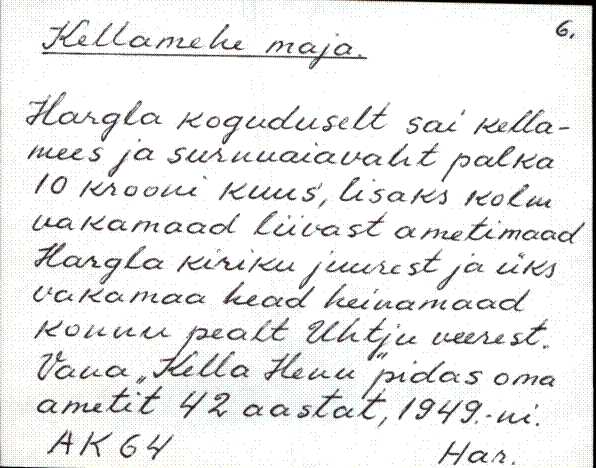 6.
Kellamehe maja.
Hargla koguduselt sai kella-
mees ja surnuaiavaht palka
10 krooni kuus, lisaks kolm
vakamaad liivast ametimaad
Hargla kiriku juurest ja üks
vakamaa head heinamaad
konnu pealt Uhtju veerest.
Vana „Kella Henn" pidas oma
ametit 42 aastat, 1949.-ni.
AK 64 Har.